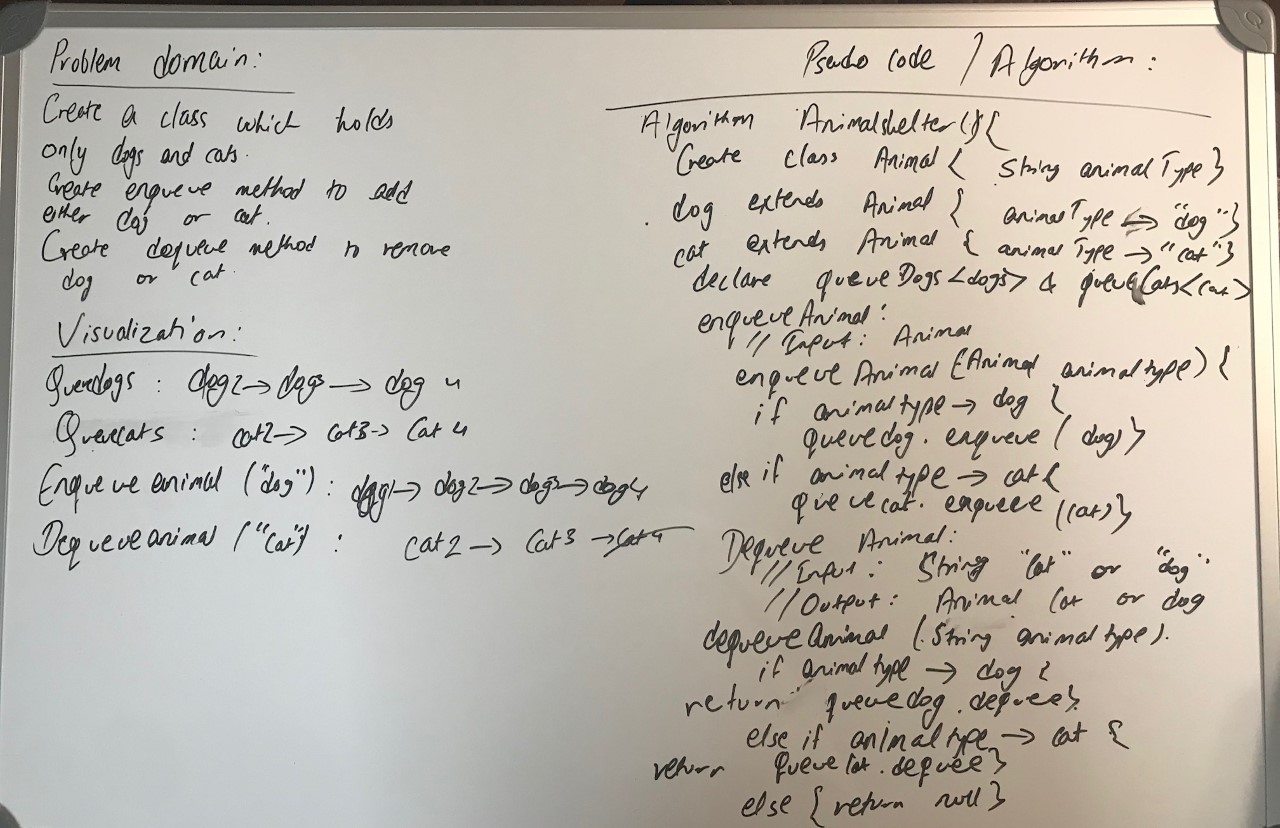 Problem domain:
Create a class which holds
only dogs and cats.
Create enqueue method to add
either dog or cat.
Create dequeue method to remove
dog or cat.
Visualization:
Queuedogs : dog2 → dog3 → dog 4
Queuecats : cat2 → cat3 → Cat 4
Enqueue animal ("dog") : dog1 → dog2 → dog3 → dog4
Dequeue animal ("Cat") : Cat2 → Cat3 → Cat4
Pseudo code / Algorithm :
Algorithm Animalshelter(){
Create class Animal { String animalType}
dog extends Animal { animalType → "dog"}
cat extends Animal { animalType → "cat"}
declare queueDogs <dogs> & queueCats<cat>
enqueueAnimal:
// Input: Animal
enqueue Animal (Animal animaltype) {
if animaltype → dog {
queuedog. enqueue ( dog)}
else if animal type → cat {
queuecat. enqueue (cat)}
Dequeue Animal:
// Input : String "Cat" or "dog".
// Output : Animal Cat or dog
dequeueAnimal (String animaltype).
if animaltype → dog {
return queuedog .dequee}
else if animaltype → cat {
return queuecat.dequee}
else { return null }